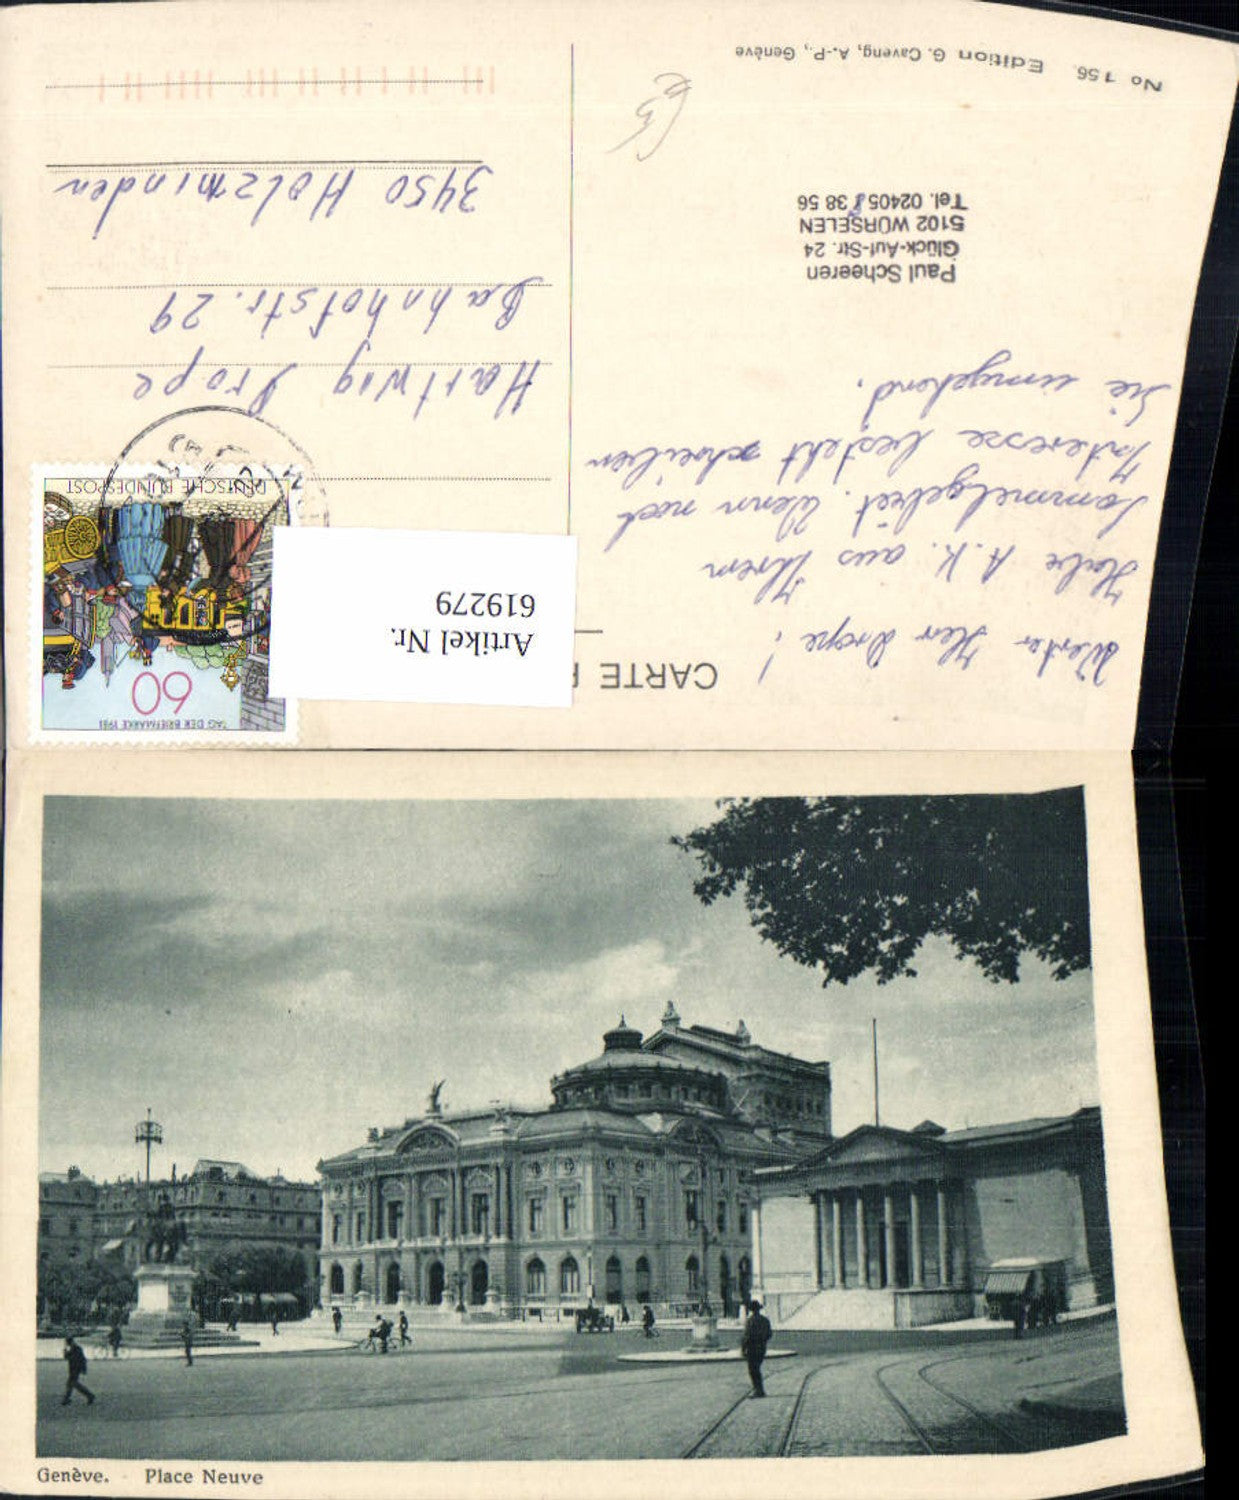 CARTE P
Werter Herr Drope!
Habe A.K. aus Ihrem
Sammelgebiet. Wenn noch
Interesse besteht schreiben
Sie umgehend.
Paul Scheeren
Glück-Auf-Str. 24
5102 WÜRSELEN
Tel. 02405 38 56
No 156. Edition G. Caveng, A.-P., Genève
Artikel Nr.
619279
TAG DER BRIEFMARKE 1981
60
DEUTSCHE BUNDESPOST
Hartwig Drope
Bahnhofstr. 29
3450 Holzminden
Genève. - Place Neuve